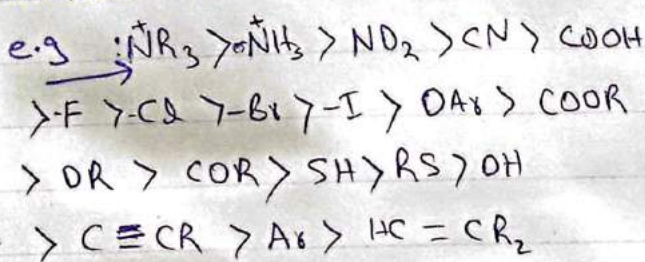 e.g :N⁺R₃ > N⁺H₃ > NO₂ > CN > COOH
> -F > -Cl > -Br > -I > OAr > COOR
> OR > COR > SH > RS > OH
> C≡CR > Ar > HC = CR₂